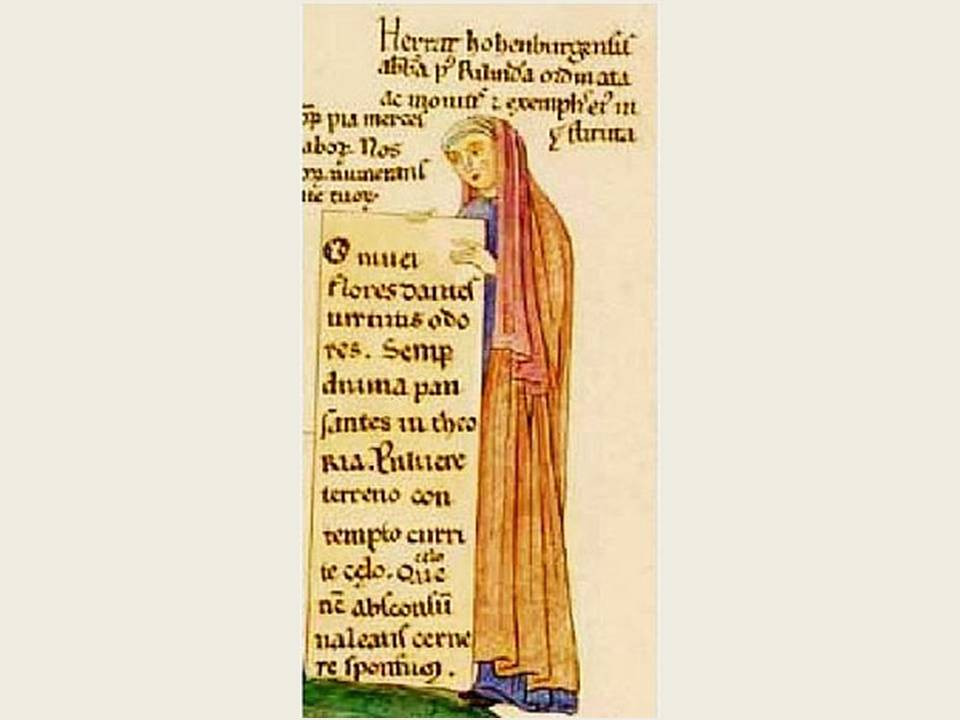 Herrat hohenburgensis
abba p' Rilinda ordinata
ac monit' ⁊ exemplis ei' in
stituta
pia merces
labor. Nos
numerans
tuor.
O niuei
flores dantes
uirtutis odo
res. Semp
diuina pau
santes in theo
ria. Puluere
terreno con
tempto curri
te celo. Que
celo
nc absconsu
ualeatis cerne
re sponsum.